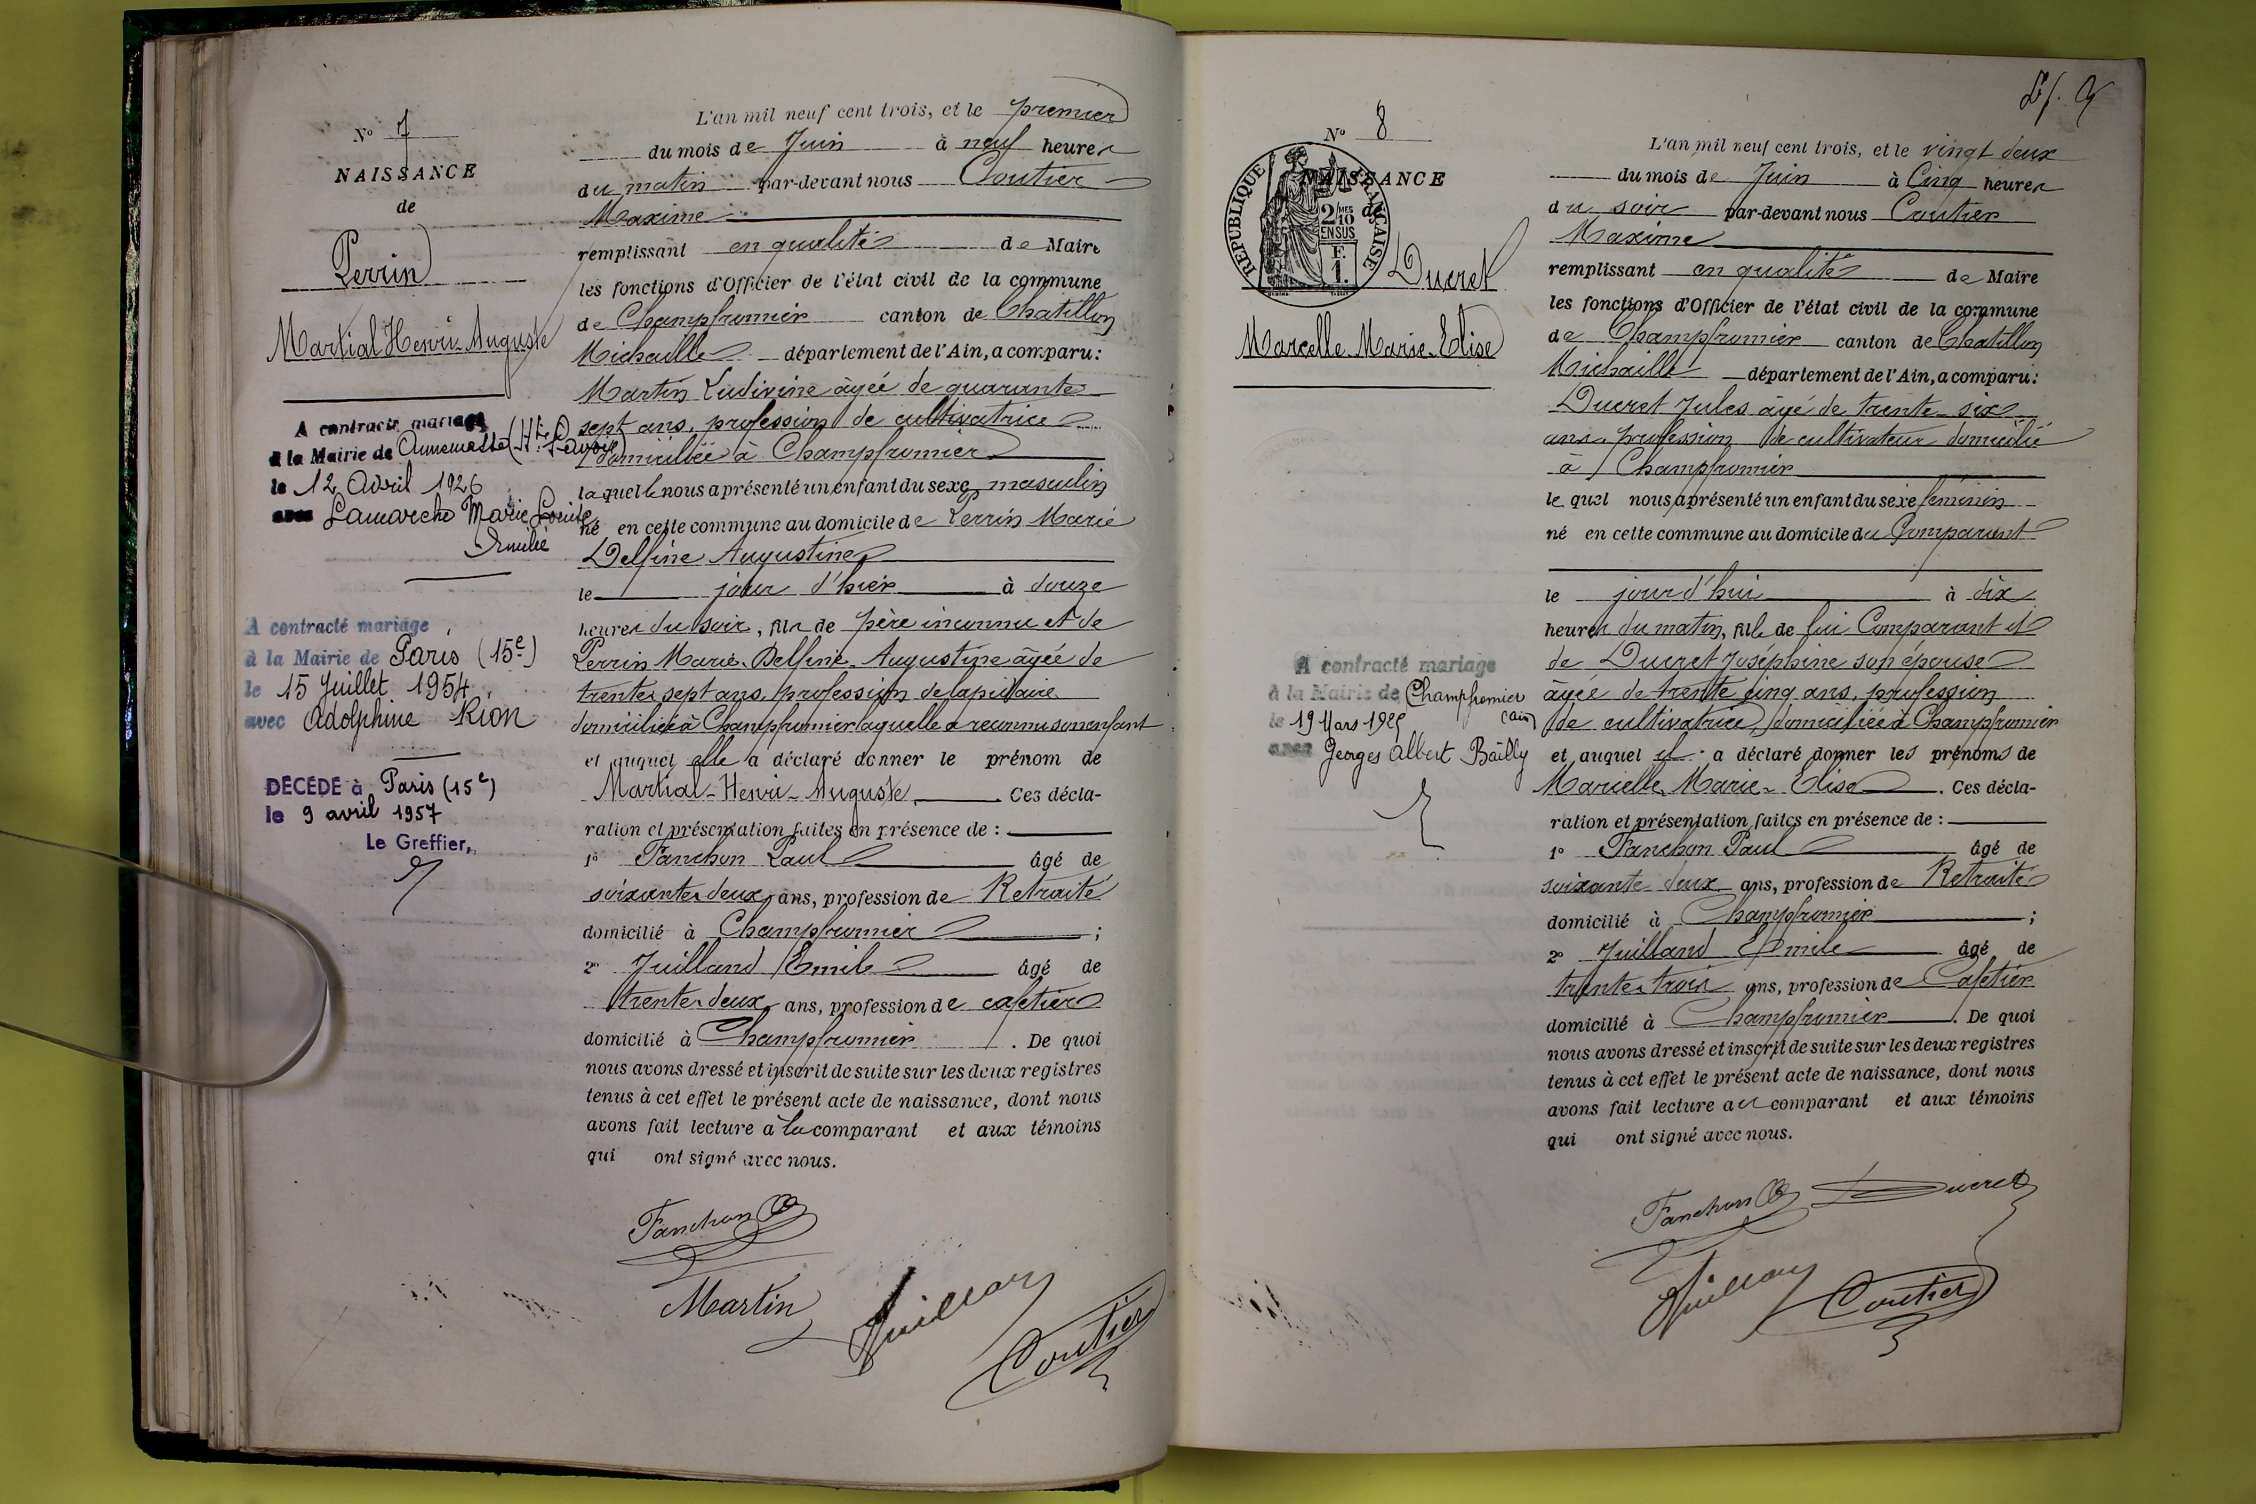 N° 7
NAISSANCE
de
Perrin
Martial Henri Auguste
A contracté mariage
à la Mairie de Annemasse (Hte Savoie)
le 12 Avril 1926
avec Lamarche Marie Louise
Emilie
A contracté mariage
à la Mairie de Paris (15e)
le 15 Juillet 1954
avec Adolphine Rion
DÉCÉDÉ à Paris (15e)
le 9 avril 1957
Le Greffier,
L'an mil neuf cent trois, et le premier
du mois de Juin à neuf heures
du matin par-devant nous Coutier
Maxime
remplissant en qualité de Maire
les fonctions d'Officier de l'état civil de la commune
de Champfromier canton de Chatillon
Michaille département de l'Ain, a comparu:
Martin Ludivine âgée de quarante
sept ans, profession de cultivatrice
domiciliée à Champfromier
laquelle nous a présenté un enfant du sexe masculin
né en cette commune au domicile de Perrin Marie
Delfine Augustine
le jour d'hier à douze
heures du soir, fils de père inconnu et de
Perrin Marie Delfine Augustine âgée de
trente sept ans, profession de lapidaire
domiciliée à Champfromier laquelle a reconnu son enfant
et auquel elle a déclaré donner le prénom de
Martial-Henri-Auguste. Ces décla-
ration et présentation faites en présence de :
1° Fanchon Paul âgé de
soixante deux ans, profession de Retraité
domicilié à Champfromier ;
2° Juilland Emile âgé de
trente deux ans, profession de cafetier
domicilié à Champfromier. De quoi
nous avons dressé et inscrit de suite sur les deux registres
tenus à cet effet le présent acte de naissance, dont nous
avons fait lecture à la comparant et aux témoins
qui ont signé avec nous.
Fanchon
Martin
Juilland
Coutier
N° 8
NAISSANCE
de
RÉPUBLIQUE FRANÇAISE
2/10 MES
EN SUS
F.
1.
Ducret
Marcelle Marie Elise
A contracté mariage
à la Mairie de Champfromier
(Ain)
le 19 Mars 1925
avec Georges Albert Bailly
L'an mil neuf cent trois, et le vingt deux
du mois de Juin à Cinq heures
du soir par-devant nous Coutier
Maxime
remplissant en qualité de Maire
les fonctions d'Officier de l'état civil de la commune
de Champfromier canton de Chatillon
Michaille département de l'Ain, a comparu:
Ducret Jules âgé de trente-six
ans, profession de cultivateur domicilié
à Champfromier
lequel nous a présenté un enfant du sexe féminin
né en cette commune au domicile du Comparant
le jour d'hui à dix
heures du matin, fille de lui Comparant et
de Ducret Joséphine son épouse
âgée de trente cinq ans, profession
de cultivatrice, domiciliée à Champfromier
et auquel il a déclaré donner les prénoms de
Marcelle Marie Elise. Ces décla-
ration et présentation faites en présence de :
1° Fanchon Paul âgé de
soixante-deux ans, profession de Retraité
domicilié à Champfromier ;
2° Juilland Emile âgé de
trente trois ans, profession de Cafetier
domicilié à Champfromier. De quoi
nous avons dressé et inscrit de suite sur les deux registres
tenus à cet effet le présent acte de naissance, dont nous
avons fait lecture au comparant et aux témoins
qui ont signé avec nous.
Fanchon Ducret
Juilland
Coutier